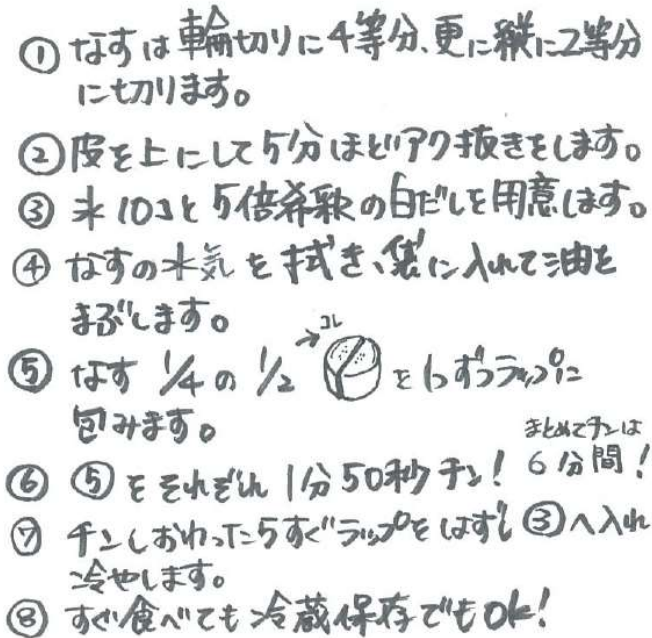 ① なすは輪切りに4等分、更に縦に2等分
に切ります。
② 皮を上にして5分ほどアク抜きをします。
③ 氷10コと5倍希釈の白だしを用意します。
④ なすの水気を拭き、袋に入れて油を
まぶします。
コレ
⑤ なす 1/4の1/2 を1つずつラップに
包みます。
まとめてチンは
⑥ ⑤をそれぞれ1分50秒チン! 6分間!
⑦ チンしおわったらすぐラップをはずし③へ入れ
冷やします。
⑧ すぐ食べても冷蔵保存でもOK!